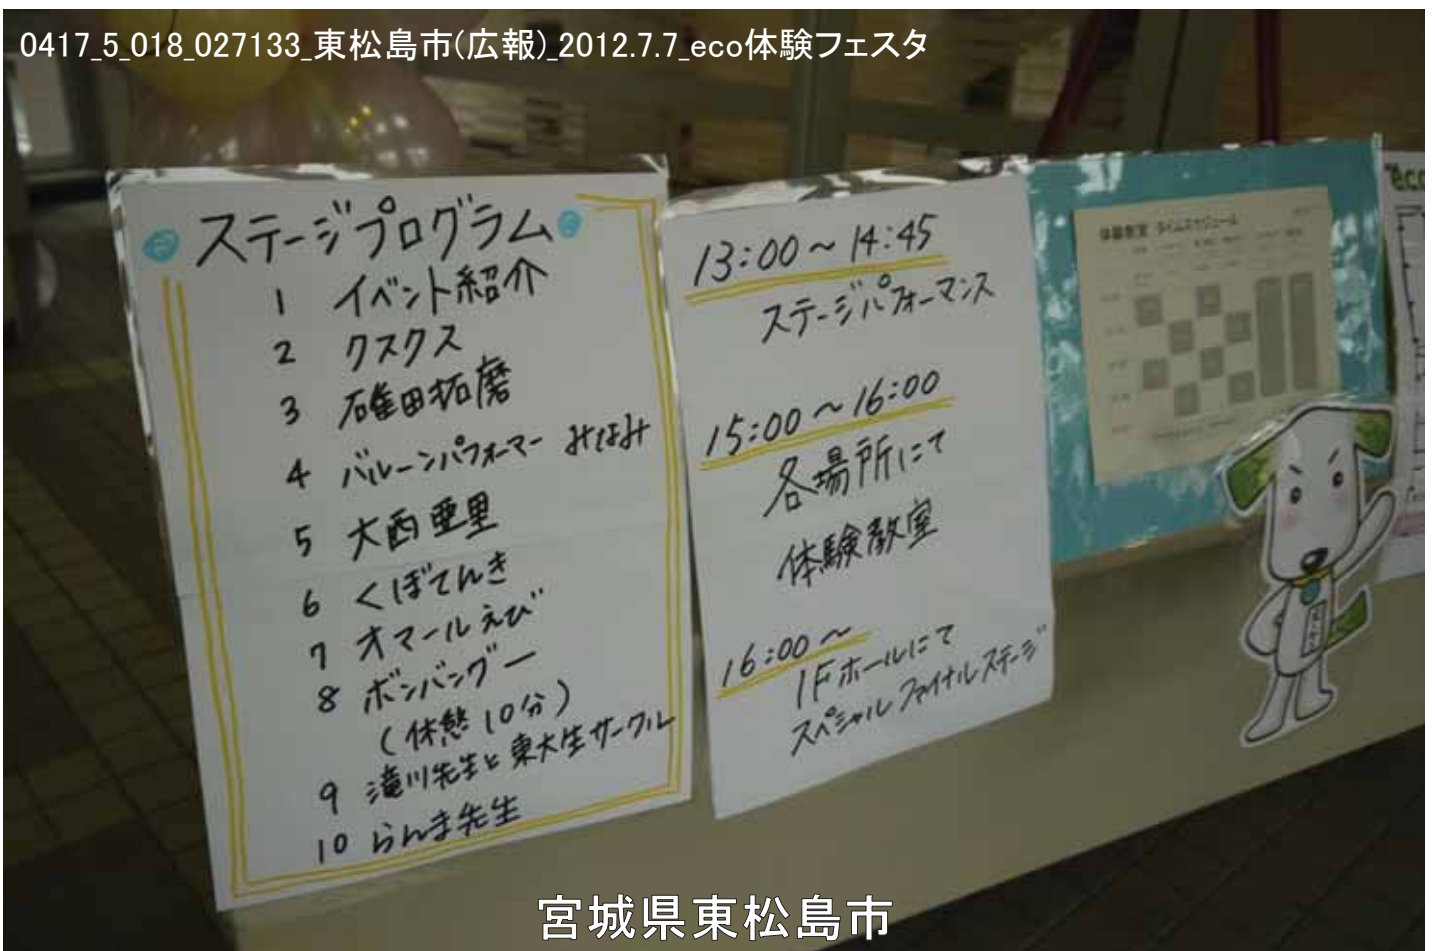 0417_5_018_027133_東松島市(広報)_2012.7.7_eco体験フェスタ
ステージプログラム
1 イベント紹介
2 クスクス
3 碓田拓磨
4 バルーンパフォーマー みなみ
5 大西亜里
6 くぼてんき
7 オマールえび
8 ボンバングー
(休憩10分)
9 滝川先生と東大生サークル
10 らんま先生
13:00～14:45
ステージパフォーマンス
15:00～16:00
各場所にて
体験教室
16:00～
1Fホールにて
スペシャルファイナルステージ
体験教室 タイムスケジュール
eco
宮城県東松島市